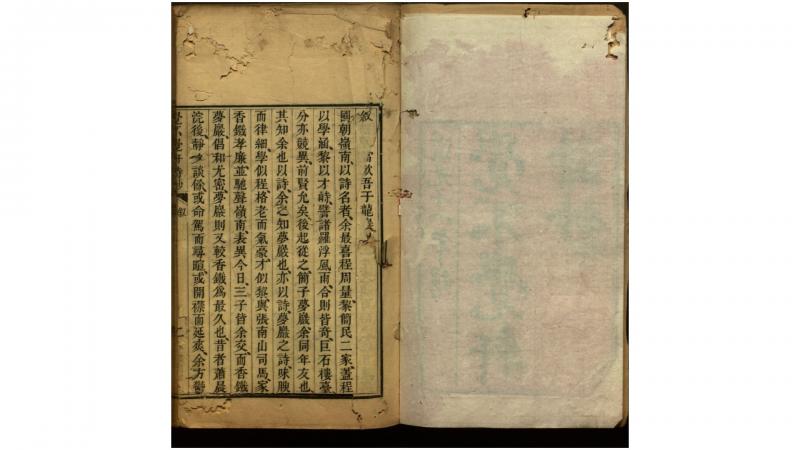 敘
國朝嶺南以詩名者余最喜程周量黎簡民二家蓋程
以學涵黎以才峙譬諸羅浮風雨合則皆奇巨石樓臺
分亦競異前賢允矣後起從之簡子夢巖余同年友也
其知余也以詩余之知夢巖也亦以詩夢巖之詩味腴
而律細學似程格老而氣豪才似黎與張南山司馬家
香鐵孝廉並馳聲嶺南表異今日三子皆余交而香鐵
夢巖倡和尤密夢巖則又較香鐵為最久也昔者蕭晨
浣後靜夕談餘或命駕而尋暄或開襟而延爽余方鬱